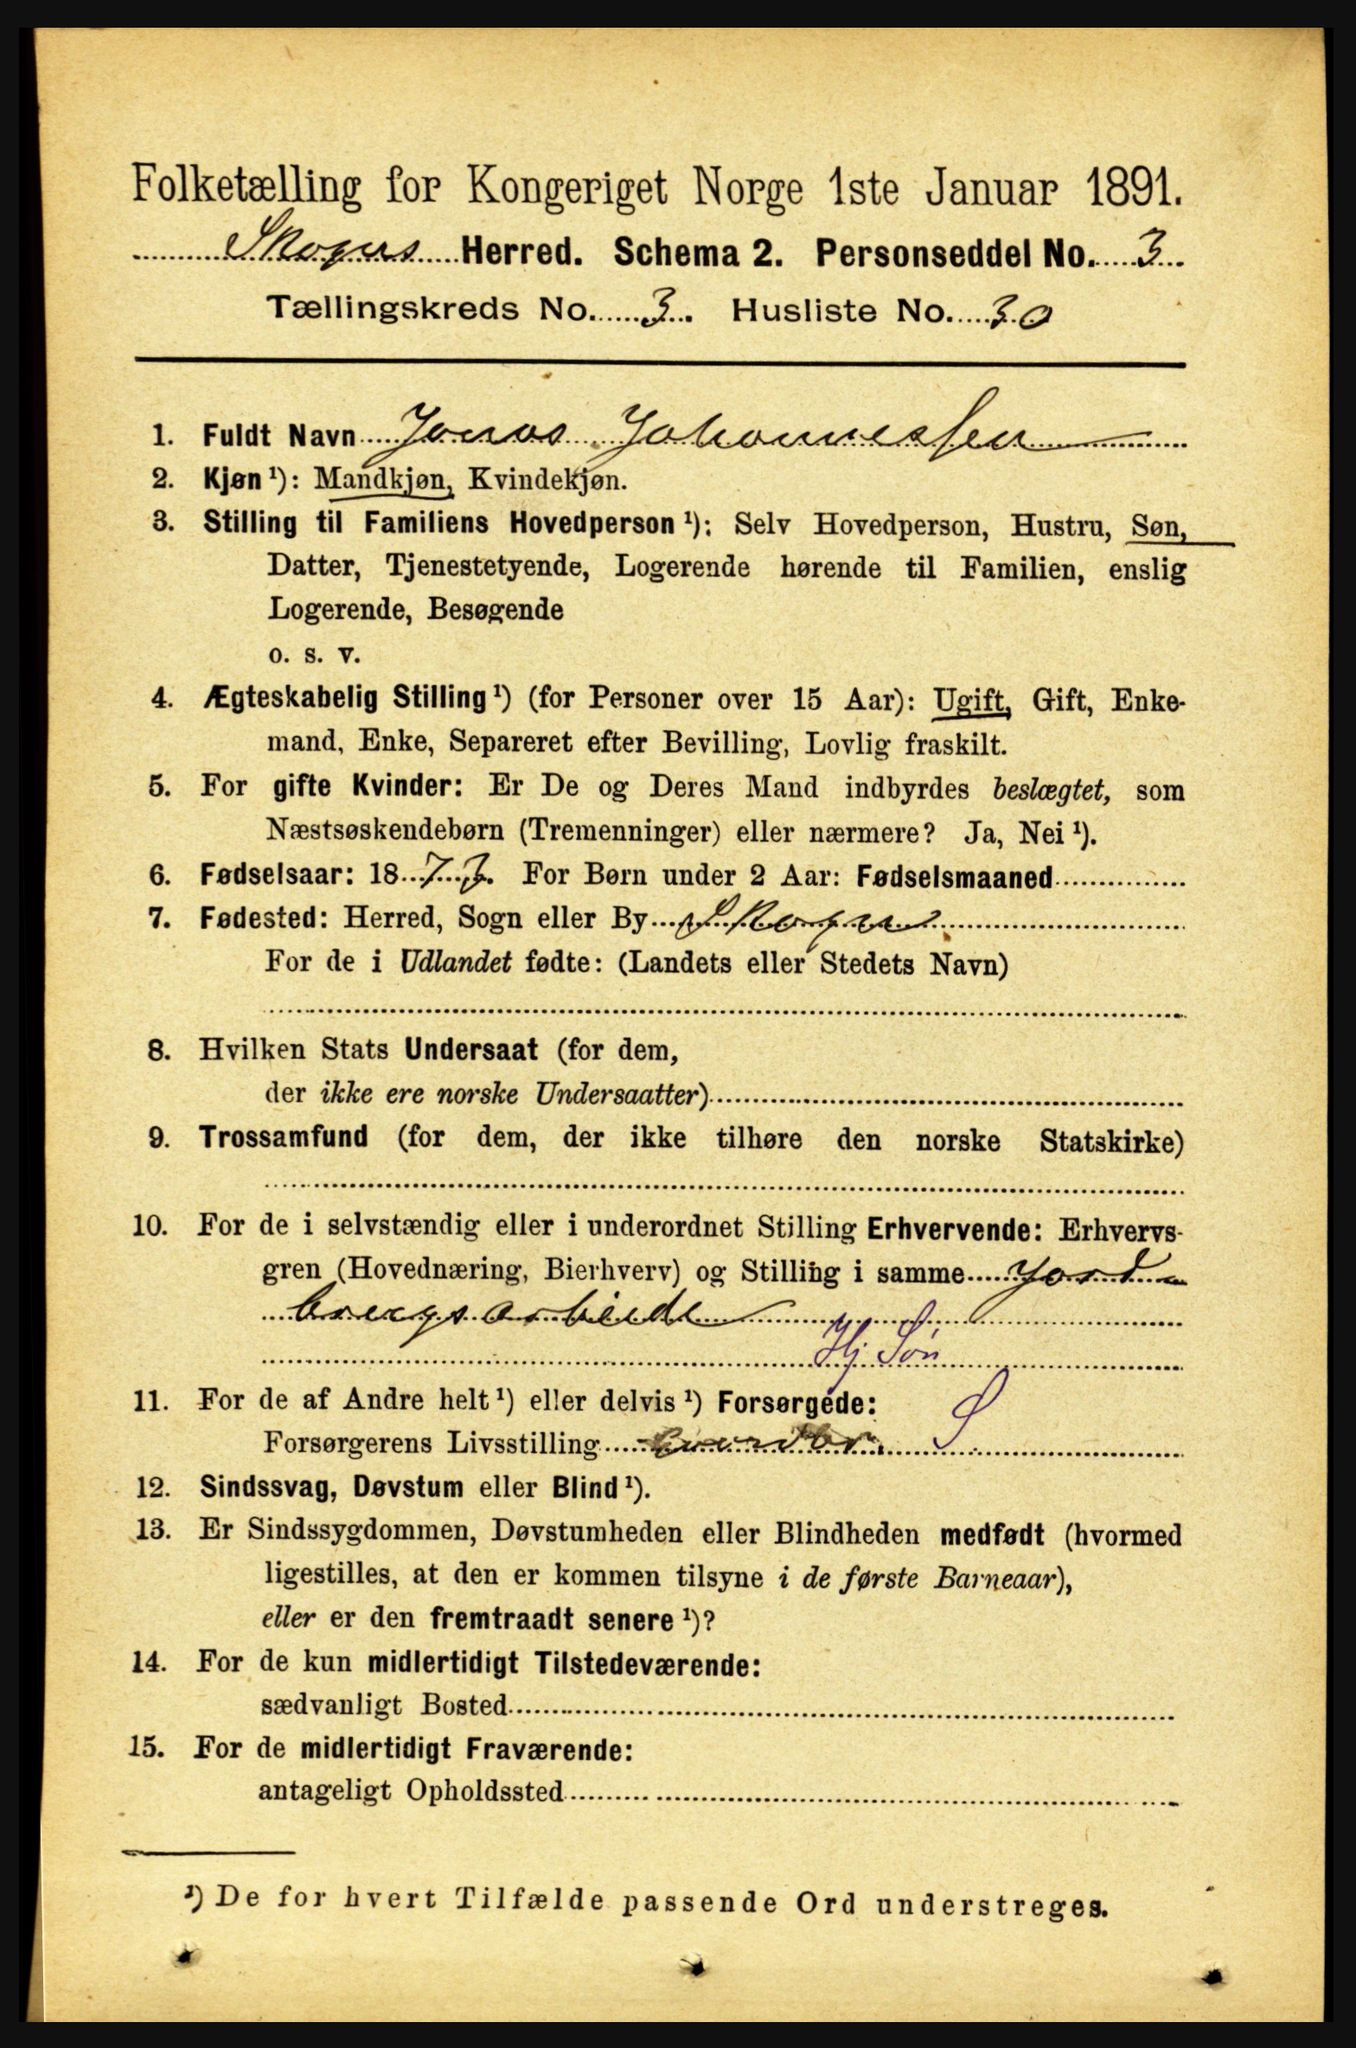 Folketælling for Kongeriget Norge 1ste Januar 1891.
Skoger Herred. Schema 2. Personseddel No. 3
Tællingskreds No. 3. Husliste No. 30
1. Fuldt Navn Jonas Johannessen
2. Kjøn ¹): Mandkjøn, Kvindekjøn.
3. Stilling til Familiens Hovedperson ¹): Selv Hovedperson, Hustru, Søn,
Datter, Tjenestetyende, Logerende hørende til Familien, enslig
Logerende, Besøgende
o. s. v.
4. Ægteskabelig Stilling ¹) (for Personer over 15 Aar): Ugift, Gift, Enke-
mand, Enke, Separeret efter Bevilling, Lovlig fraskilt.
5. For gifte Kvinder: Er De og Deres Mand indbyrdes beslægtet, som
Næstsøskendebørn (Tremenninger) eller nærmere? Ja, Nei ¹).
6. Fødselsaar: 1873. For Børn under 2 Aar: Fødselsmaaned
7. Fødested: Herred, Sogn eller By Skoger
For de i Udlandet fødte: (Landets eller Stedets Navn)
8. Hvilken Stats Undersaat (for dem,
der ikke ere norske Undersaatter)
9. Trossamfund (for dem, der ikke tilhøre den norske Statskirke)
10. For de i selvstændig eller i underordnet Stilling Erhvervende: Erhvervs-
gren (Hovednæring, Bierhverv) og Stilling i samme Jord
brugsarbeide
Hj Søn
11. For de af Andre helt ¹) eller delvis ¹) Forsørgede:
Forsørgerens Livsstilling
12. Sindssvag, Døvstum eller Blind ¹).
13. Er Sindssygdommen, Døvstumheden eller Blindheden medfødt (hvormed
ligestilles, at den er kommen tilsyne i de første Barneaar),
eller er den fremtraadt senere ¹)?
14. For de kun midlertidigt Tilstedeværende:
sædvanligt Bosted
15. For de midlertidigt Fraværende:
antageligt Opholdssted
¹) De for hvert Tilfælde passende Ord understreges.